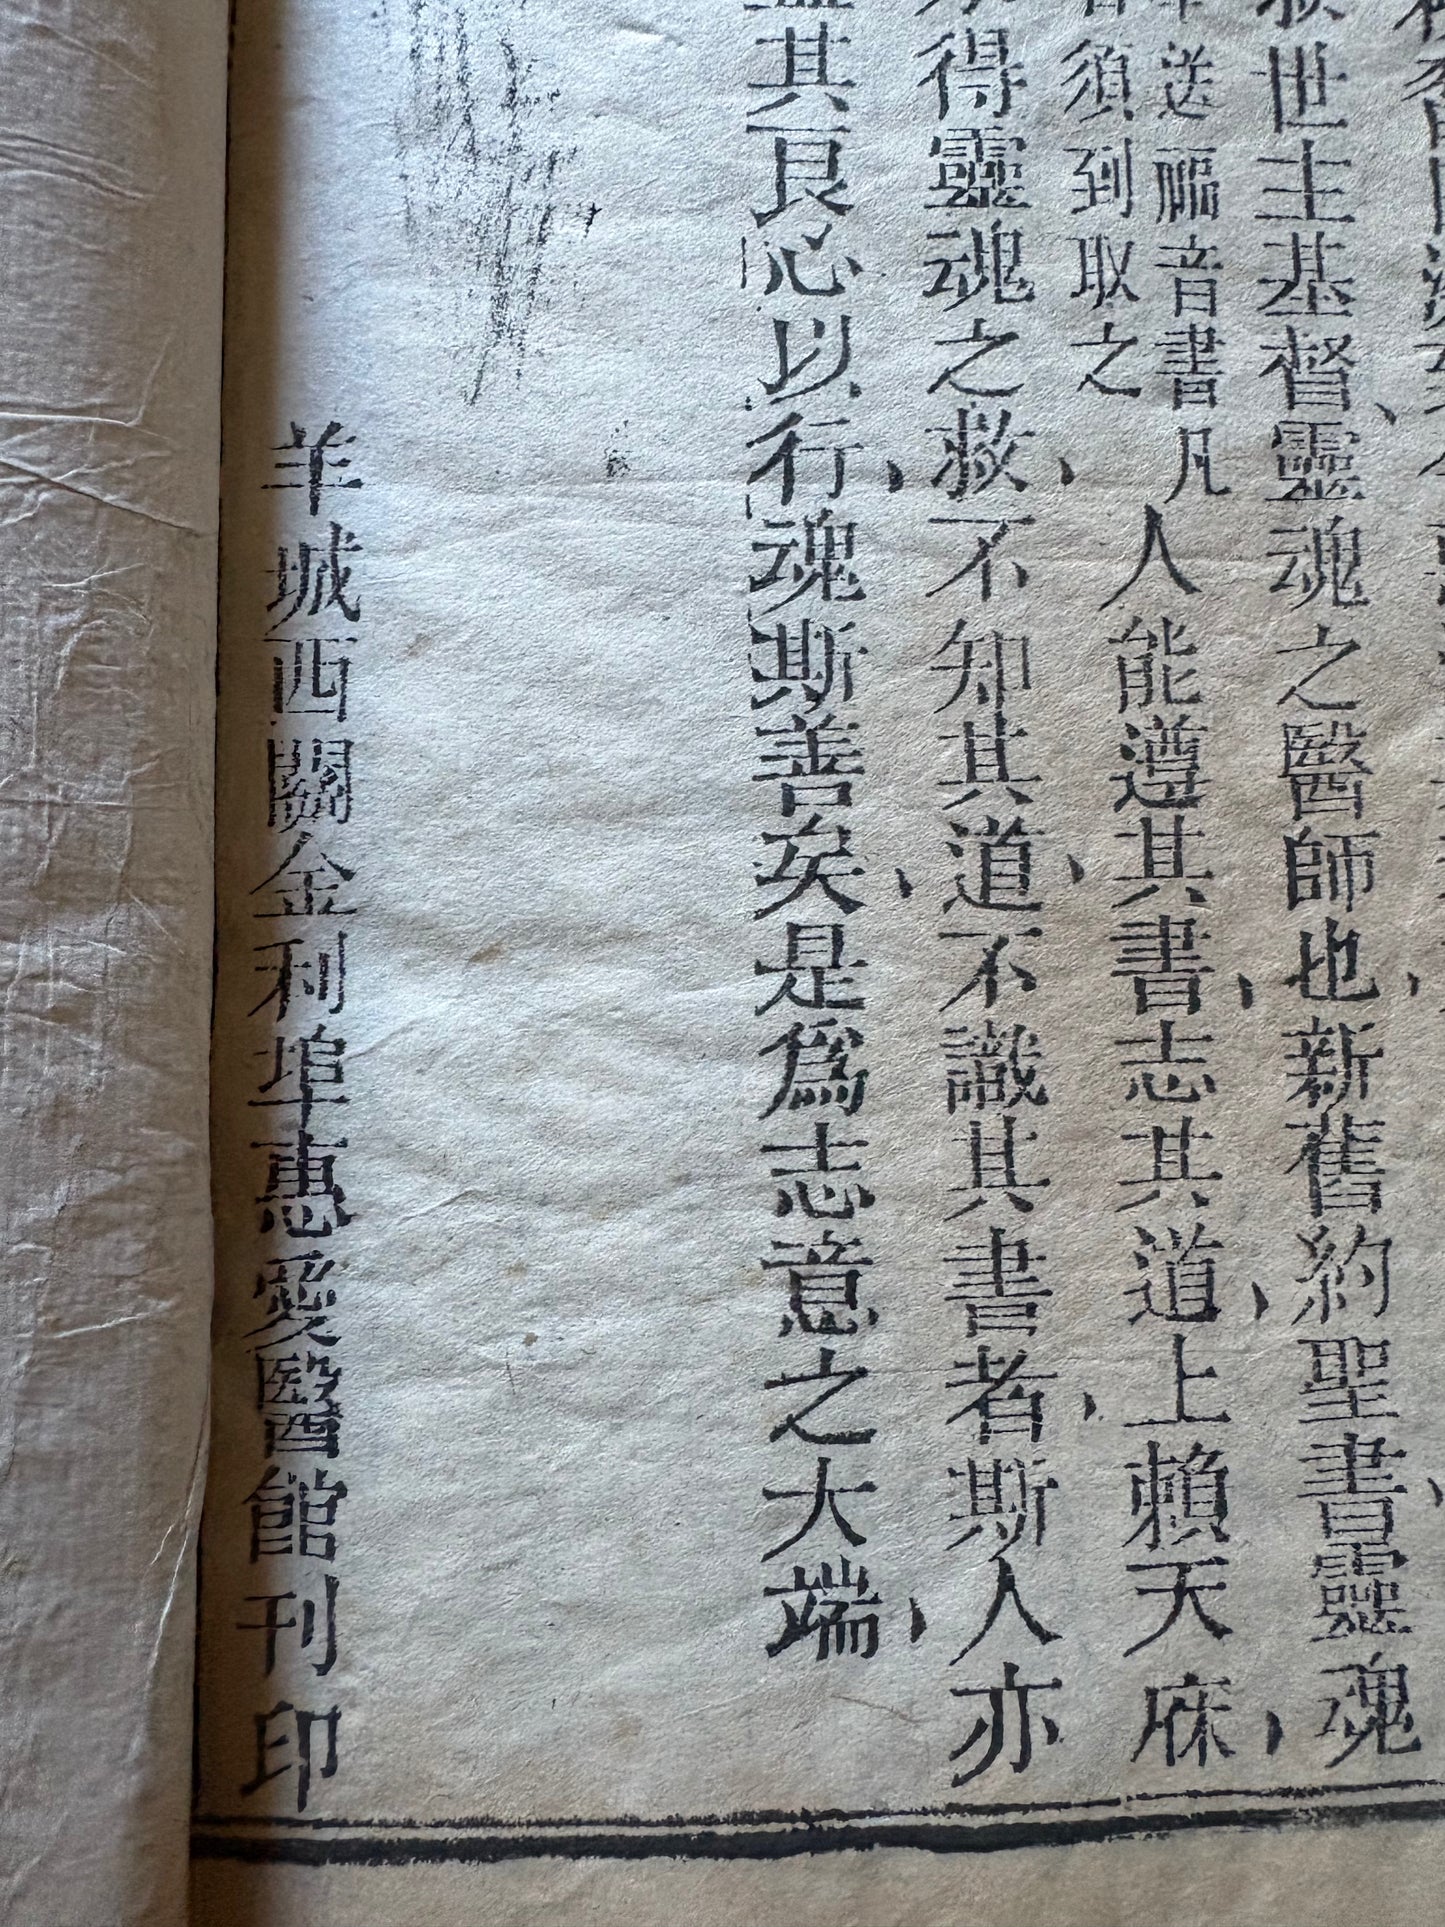 救世主基督、靈魂之醫師也、新舊約聖書、靈魂
送福音書凡
須到取之
人能遵其書、志其道、上賴天庥、
得靈魂之救、不知其道、不識其書者、斯人亦
其良心以行、魂斯善矣、是爲志意之大端、
羊城西關金利埠惠愛醫館刊印